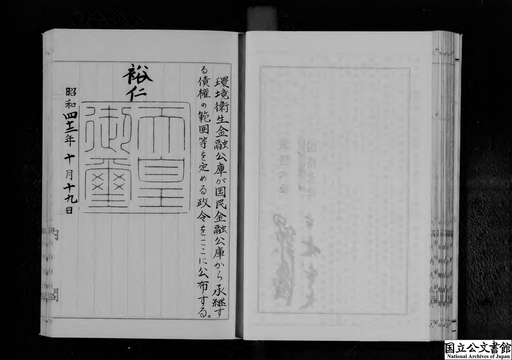 環境衛生金融公庫が国民金融公庫から承継す
る債権の範囲等を定める政令をここに公布する。
裕仁
天皇
御璽
昭和四十二年十月十九日
内
閣
国立公文書館
National Archives of Japan